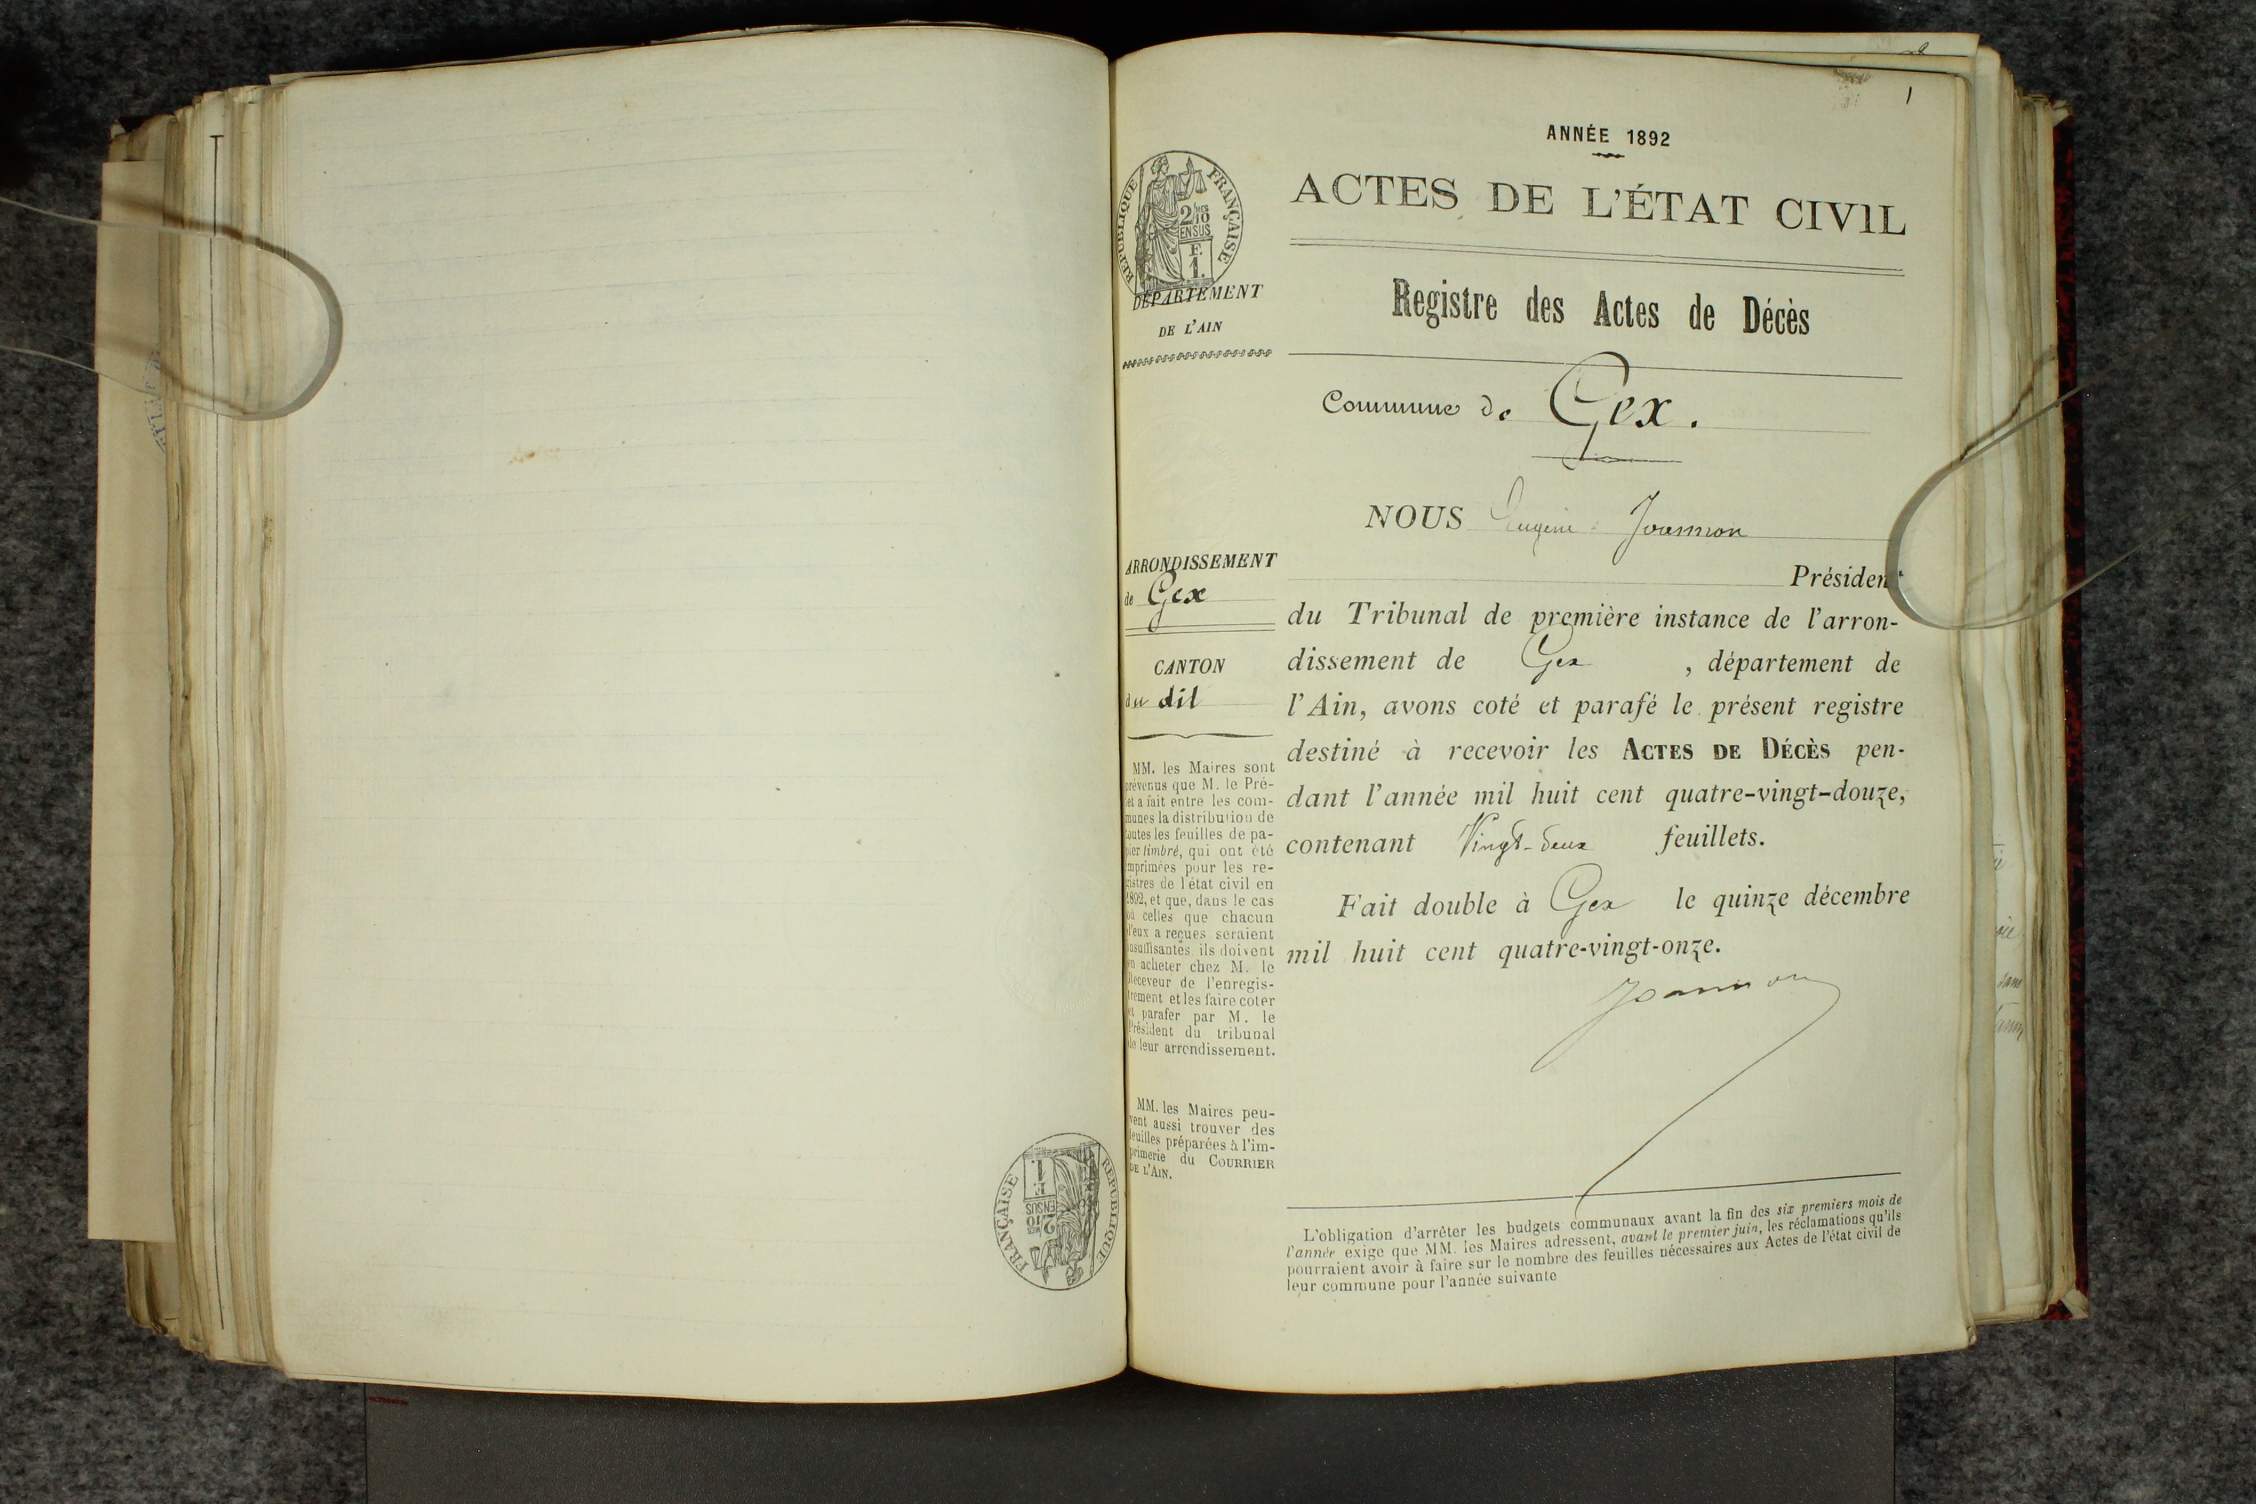 1
ANNÉE 1892
ACTES DE L'ÉTAT CIVIL
Registre des Actes de Décès
Commune de Gex.
NOUS Eugène Joannon
Président
du Tribunal de première instance de l'arron-
dissement de Gex , département de
l'Ain, avons coté et parafé le présent registre
destiné à recevoir les ACTES DE DÉCÈS pen-
dant l'année mil huit cent quatre-vingt-douze,
contenant Vingt-deux feuillets.
Fait double à Gex le quinze décembre
mil huit cent quatre-vingt-onze.
Joannon
L'obligation d'arrêter les budgets communaux avant la fin des six premiers mois de
l'année exige que MM. les Maires adressent, avant le premier juin, les réclamations qu'ils
pourraient avoir à faire sur le nombre des feuilles nécessaires aux Actes de l'état civil de
leur commune pour l'année suivante
RÉPUBLIQUE FRANÇAISE
2/10
EN SUS
F.
1.
DÉPARTEMENT
DE L'AIN
ARRONDISSEMENT
de Gex
CANTON
du dit
MM. les Maires sont
prévenus que M. le Pré-
fet a fait entre les com-
munes la distribution de
toutes les feuilles de pa-
pier timbré, qui ont été
imprimées pour les re-
gistres de l'état civil en
1892, et que, dans le cas
où celles que chacun
d'eux a reçues seraient
insuffisantes, ils doivent
en acheter chez M. le
Receveur de l'enregis-
trement et les faire coter
et parafer par M. le
Président du tribunal
de leur arrondissement.
MM. les Maires peu-
vent aussi trouver des
feuilles préparées à l'im-
primerie du COURRIER
DE L'AIN.
RÉPUBLIQUE FRANÇAISE
2/10
EN SUS
F.
1.